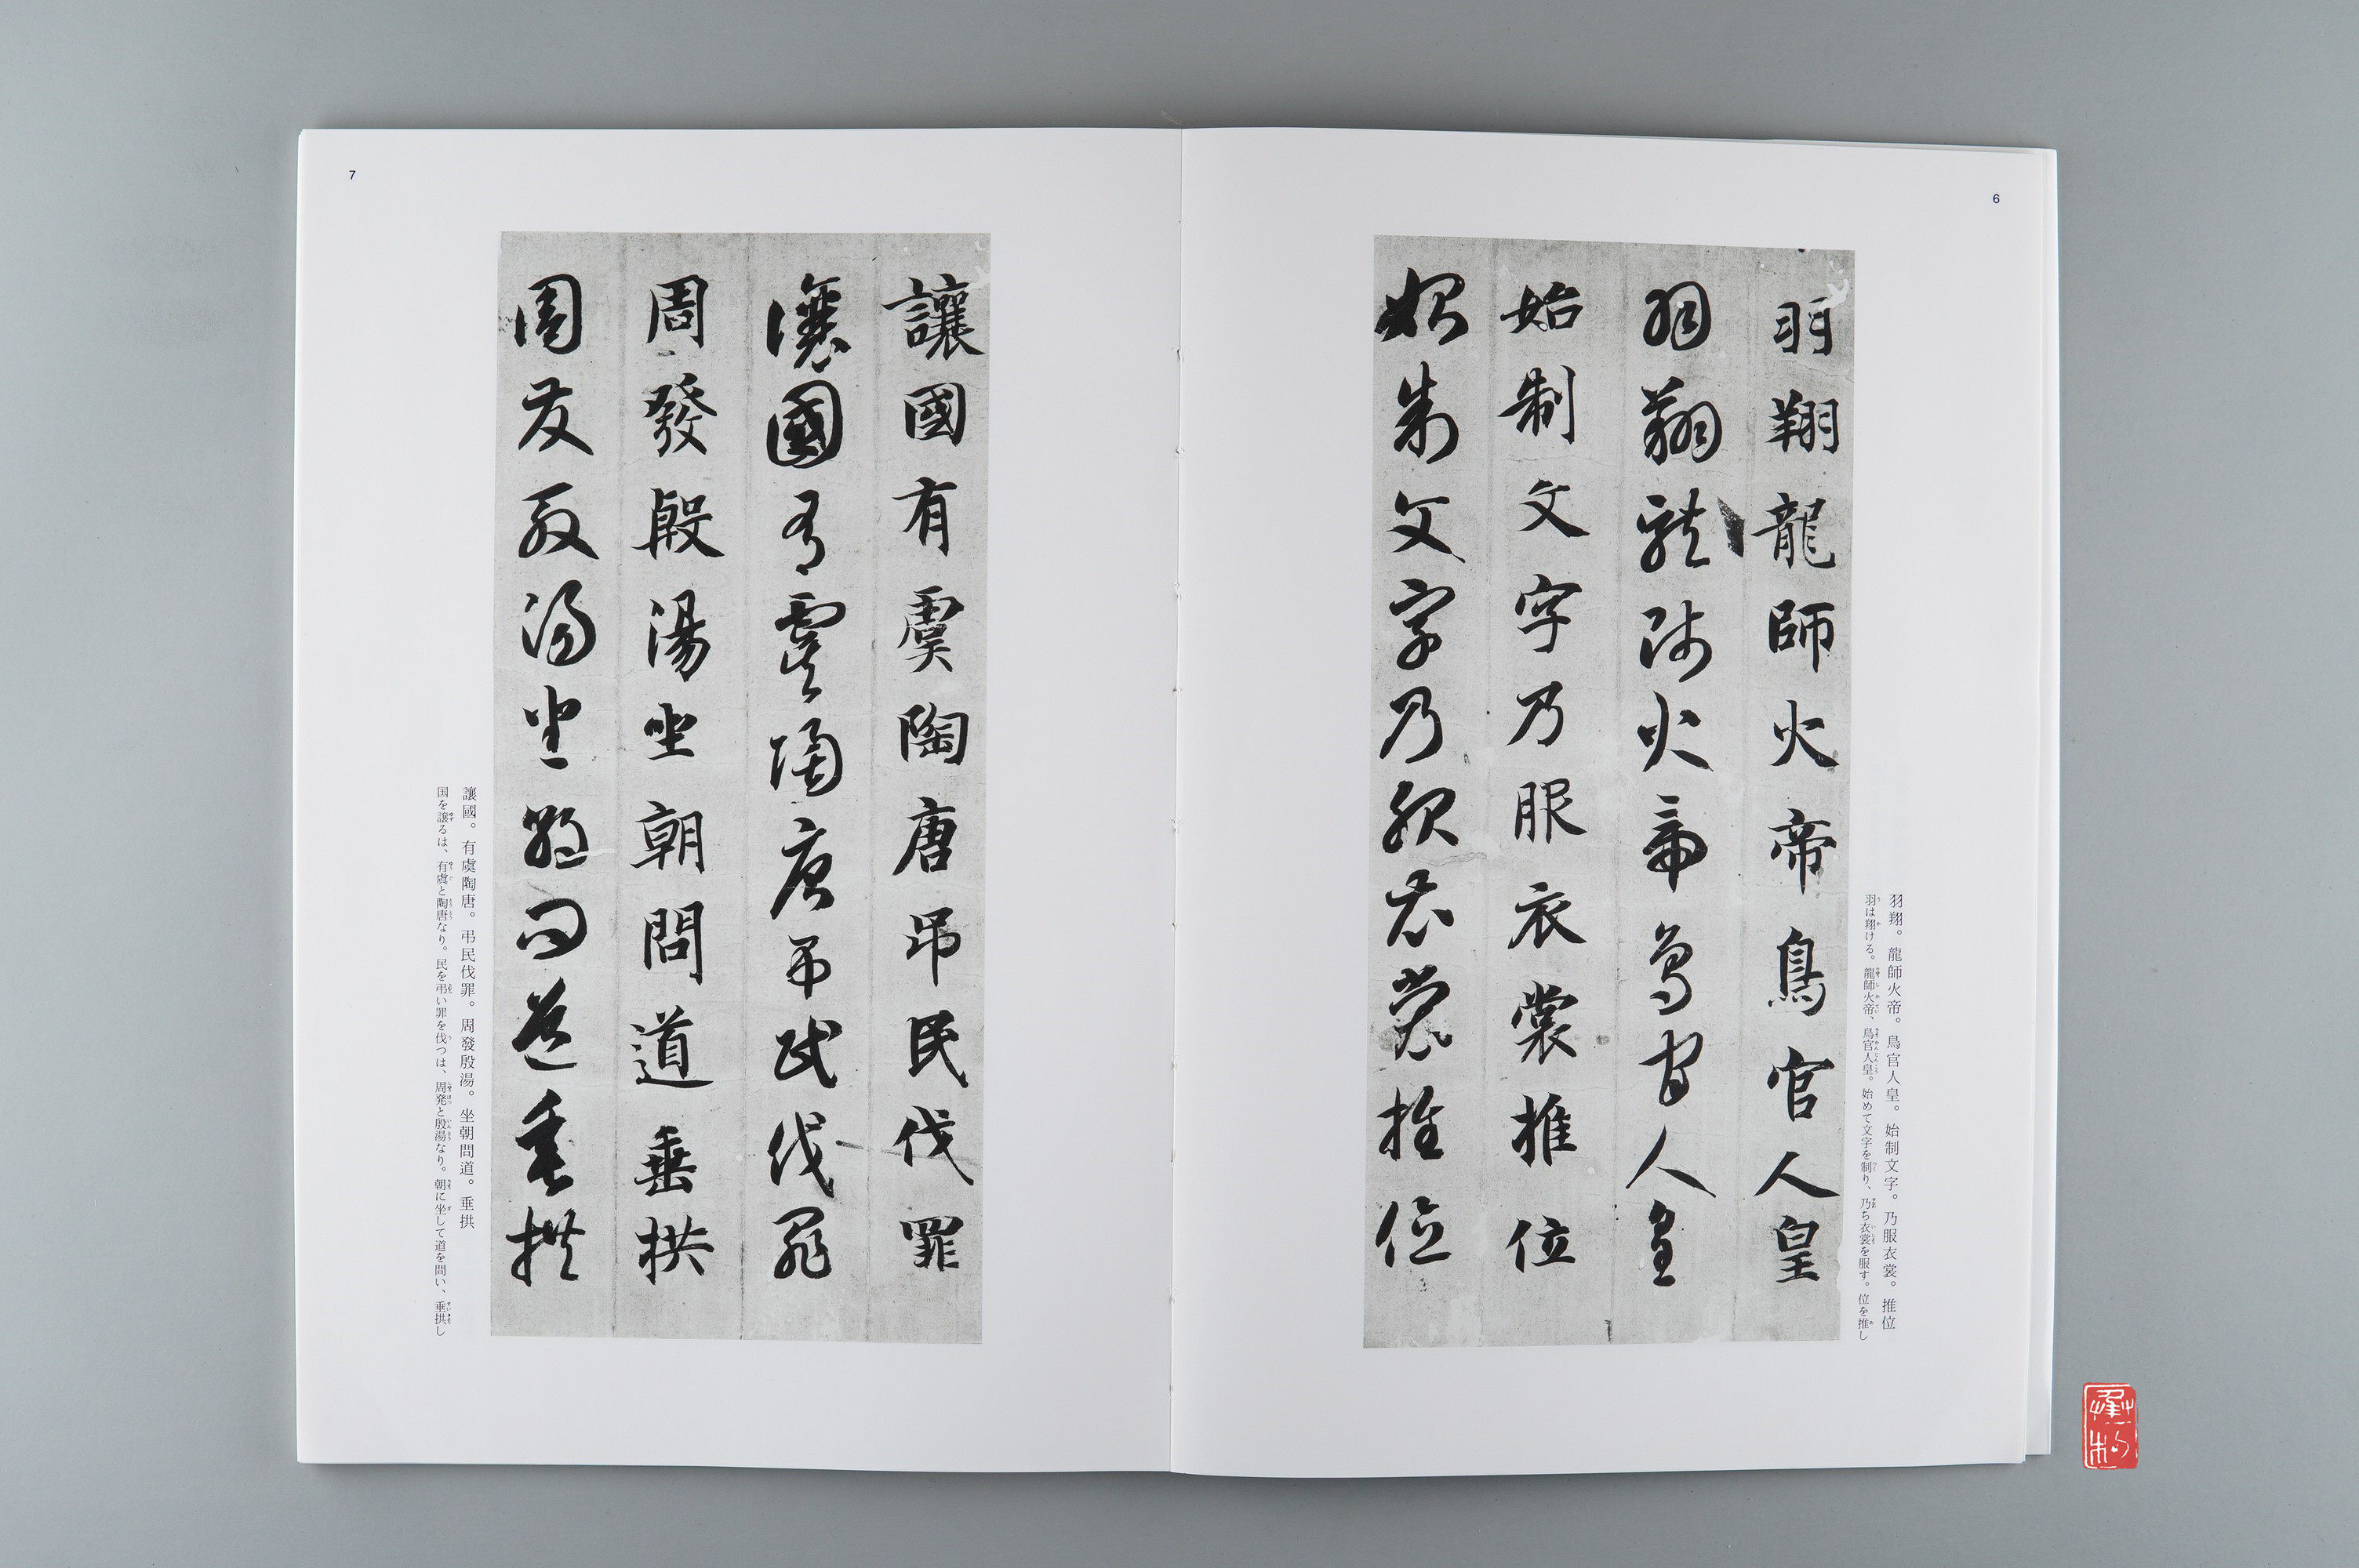 6
羽翔龍師火帝鳥官人皇
羽翔龍師火帝鳥官人皇
始制文字乃服衣裳推位
始制文字乃服衣裳推位
羽翔。龍師火帝。鳥官人皇。始制文字。乃服衣裳。推位
羽は翔ける。龍師火帝、鳥官人皇。始めて文字を制り、乃ち衣裳を服す。位を推し
7
讓國有虞陶唐弔民伐罪
讓國有虞陶唐弔民伐罪
周發殷湯坐朝問道垂拱
周發殷湯坐朝問道垂拱
讓國。有虞陶唐。弔民伐罪。周發殷湯。坐朝問道。垂拱
国を譲るは、有虞と陶唐なり。民を弔い罪を伐つは、周発と殷湯なり。朝に坐して道を問い、垂拱し